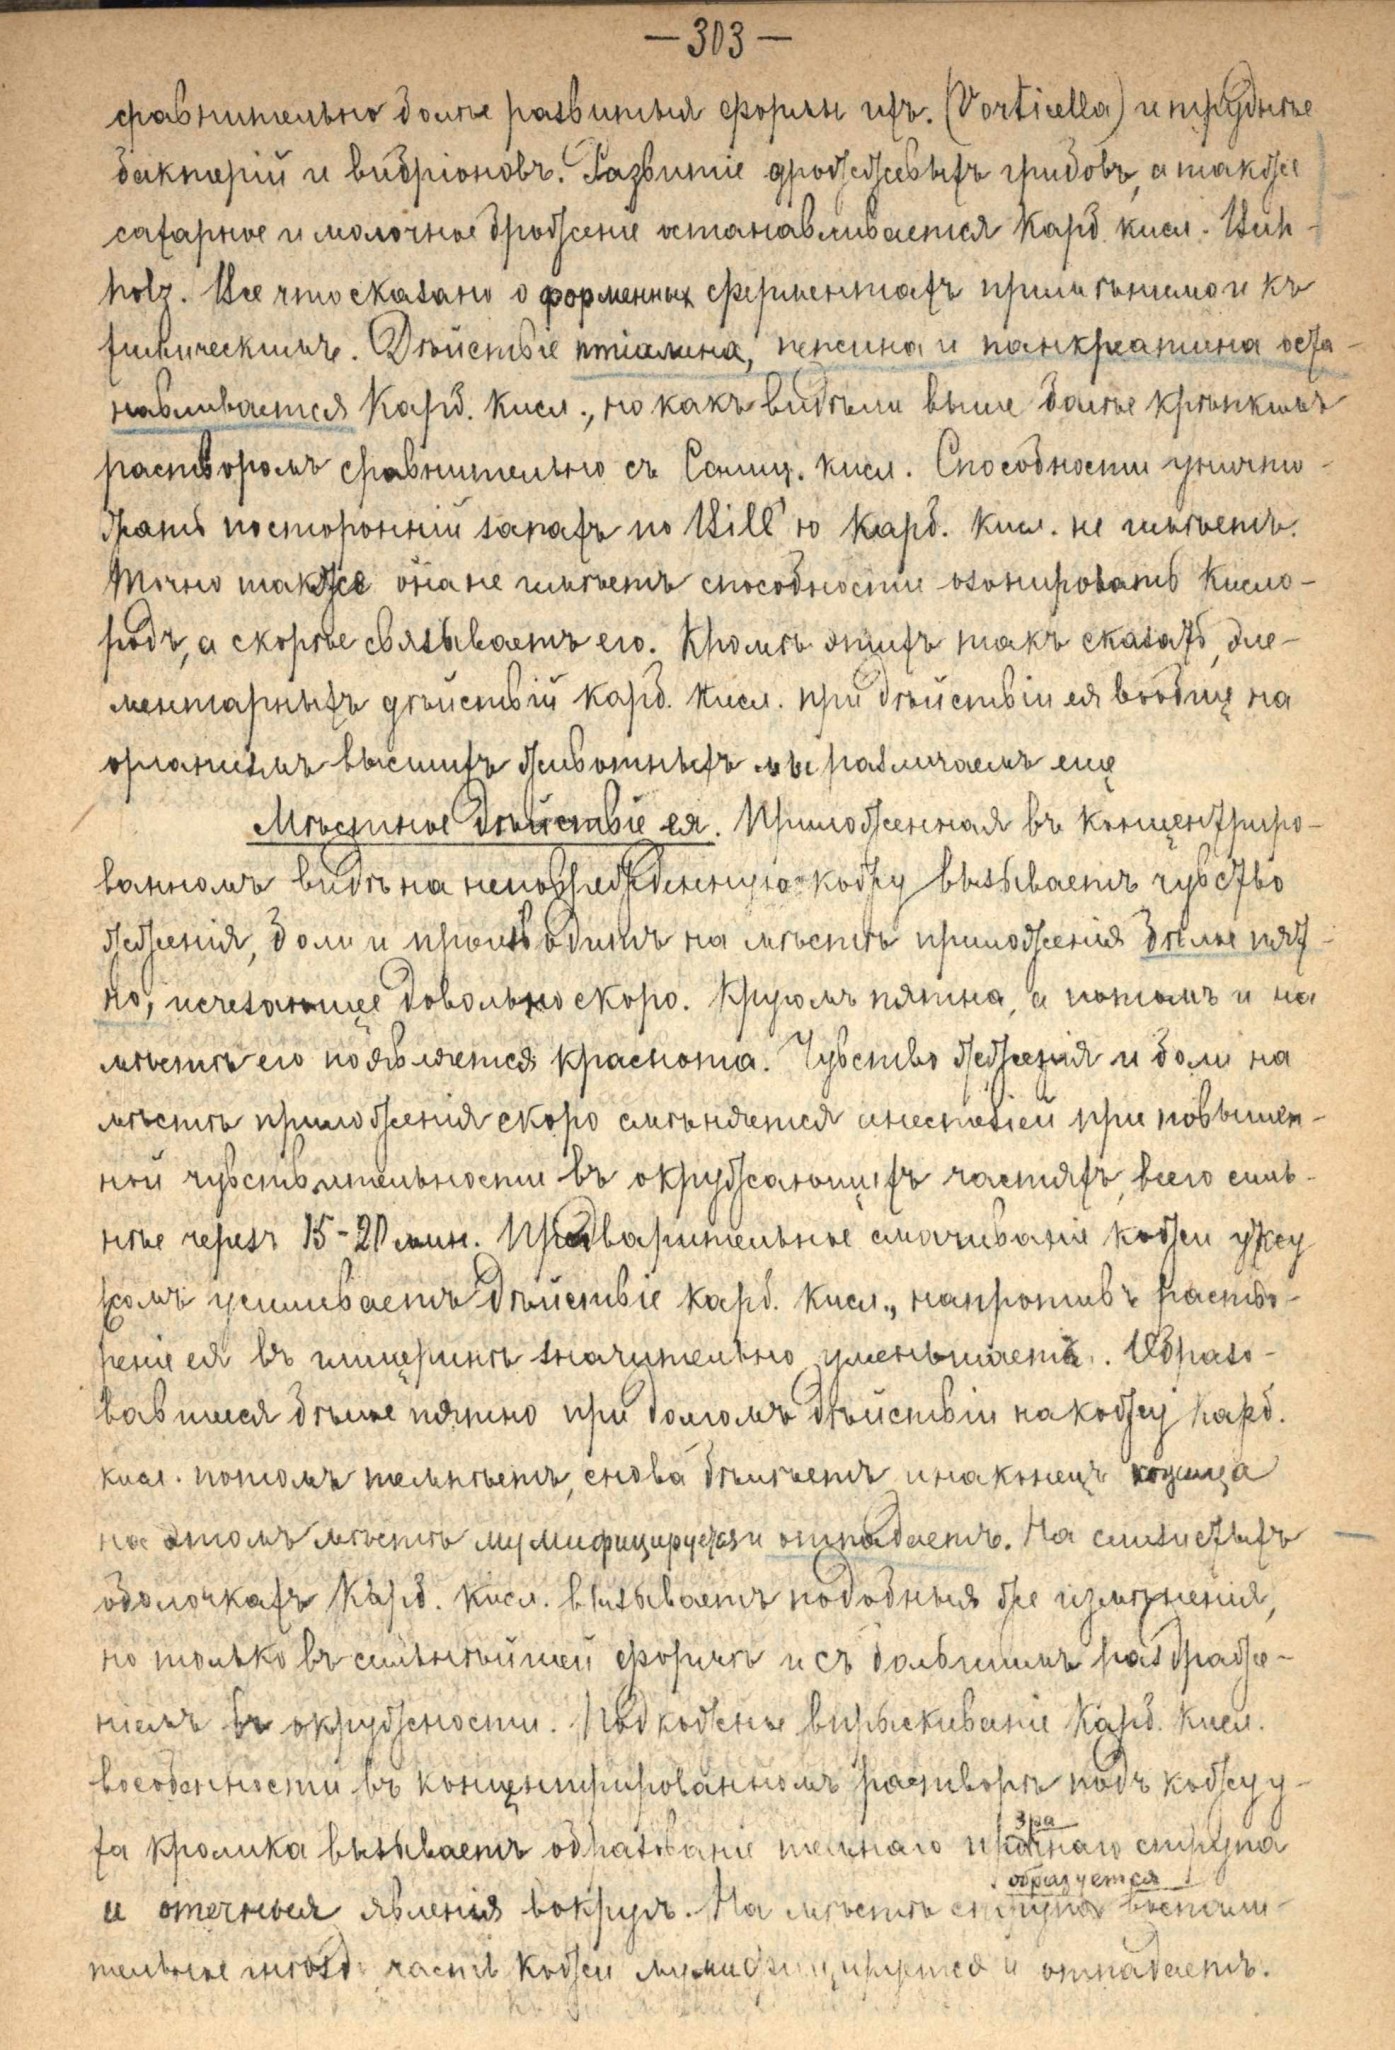 — 303 —
сравнительно болѣе развитыя формы ихъ. (Vorticella) и труднѣе
бактерій и вибріоновъ. Развитіе дрожжевыхъ грибовъ, а также
сахарное и молочное броженіе останавливается Карб. кисл. Buh-
holz. Все что сказано о форменных ферментахъ примѣнимо и къ
химическимъ. Дѣйствіе птіалина, пепсина и панкреатина оста-
навливается Карб. Кисл., но какъ видѣли выше болѣе крѣпкимъ
растворомъ сравнительно съ Салиц. кисл. Способности уничто-
жать посторонній запахъ по Bill'ю Карб. Кисл. не имѣетъ.
Точно также она не имѣетъ способности озонировать Кисло-
родъ, а скорѣе связываетъ его. Кромѣ этихъ такъ сказать, эле-
ментарныхъ дѣйствій Карб. Кисл. при дѣйствіи ея вообще на
организмъ высшихъ животныхъ мы различаемъ еще
Мѣстное дѣйствіе ея. Приложенная въ концентриро-
ванномъ видѣ на неповрежденную кожу вызываетъ чувство
жженія, боли и производитъ на мѣстѣ приложенія бѣлое пят-
но, исчезающее довольно скоро. Кругомъ пятна, а потомъ и на
мѣстѣ его появляется краснота. Чувство жженія и боли на
мѣстѣ приложенія скоро смѣняется анестезіей при повышен-
ной чувствительности въ окружающихъ частяхъ, всего силь-
нѣе черезъ 15-20 мин. Предварительное смачиваніе кожи уксу
сомъ усиливаетъ дѣйствіе Карб. Кисл., напротивъ раство-
реніе ея въ глицеринѣ значительно уменьшаетъ. Образо-
вавшееся бѣлое пятно при долгомъ дѣйствіи на кожу Карб.
кисл. потомъ темнѣетъ, снова бѣлѣетъ и наконецъ кожица
на этомъ мѣстѣ мумифицируется и отпадаетъ. На слизистыхъ
оболочкахъ Карб. Кисл. вызываетъ подобныя же измѣненія,
но только въ сильнѣйшей формѣ и съ большимъ раздраже-
ніемъ въ окружности. Подкожное впрыскиваніе Карб. Кисл.
вособенности въ концентрированномъ растворѣ подъ кожу у-
ха кролика вызываетъ образованіе темнаго прозрачнаго струпа
и отечныя явленія вокругъ. На мѣстѣ струпа образуется воспали-
тельное гнѣздо часть кожи мумифицируется и отпадаетъ.